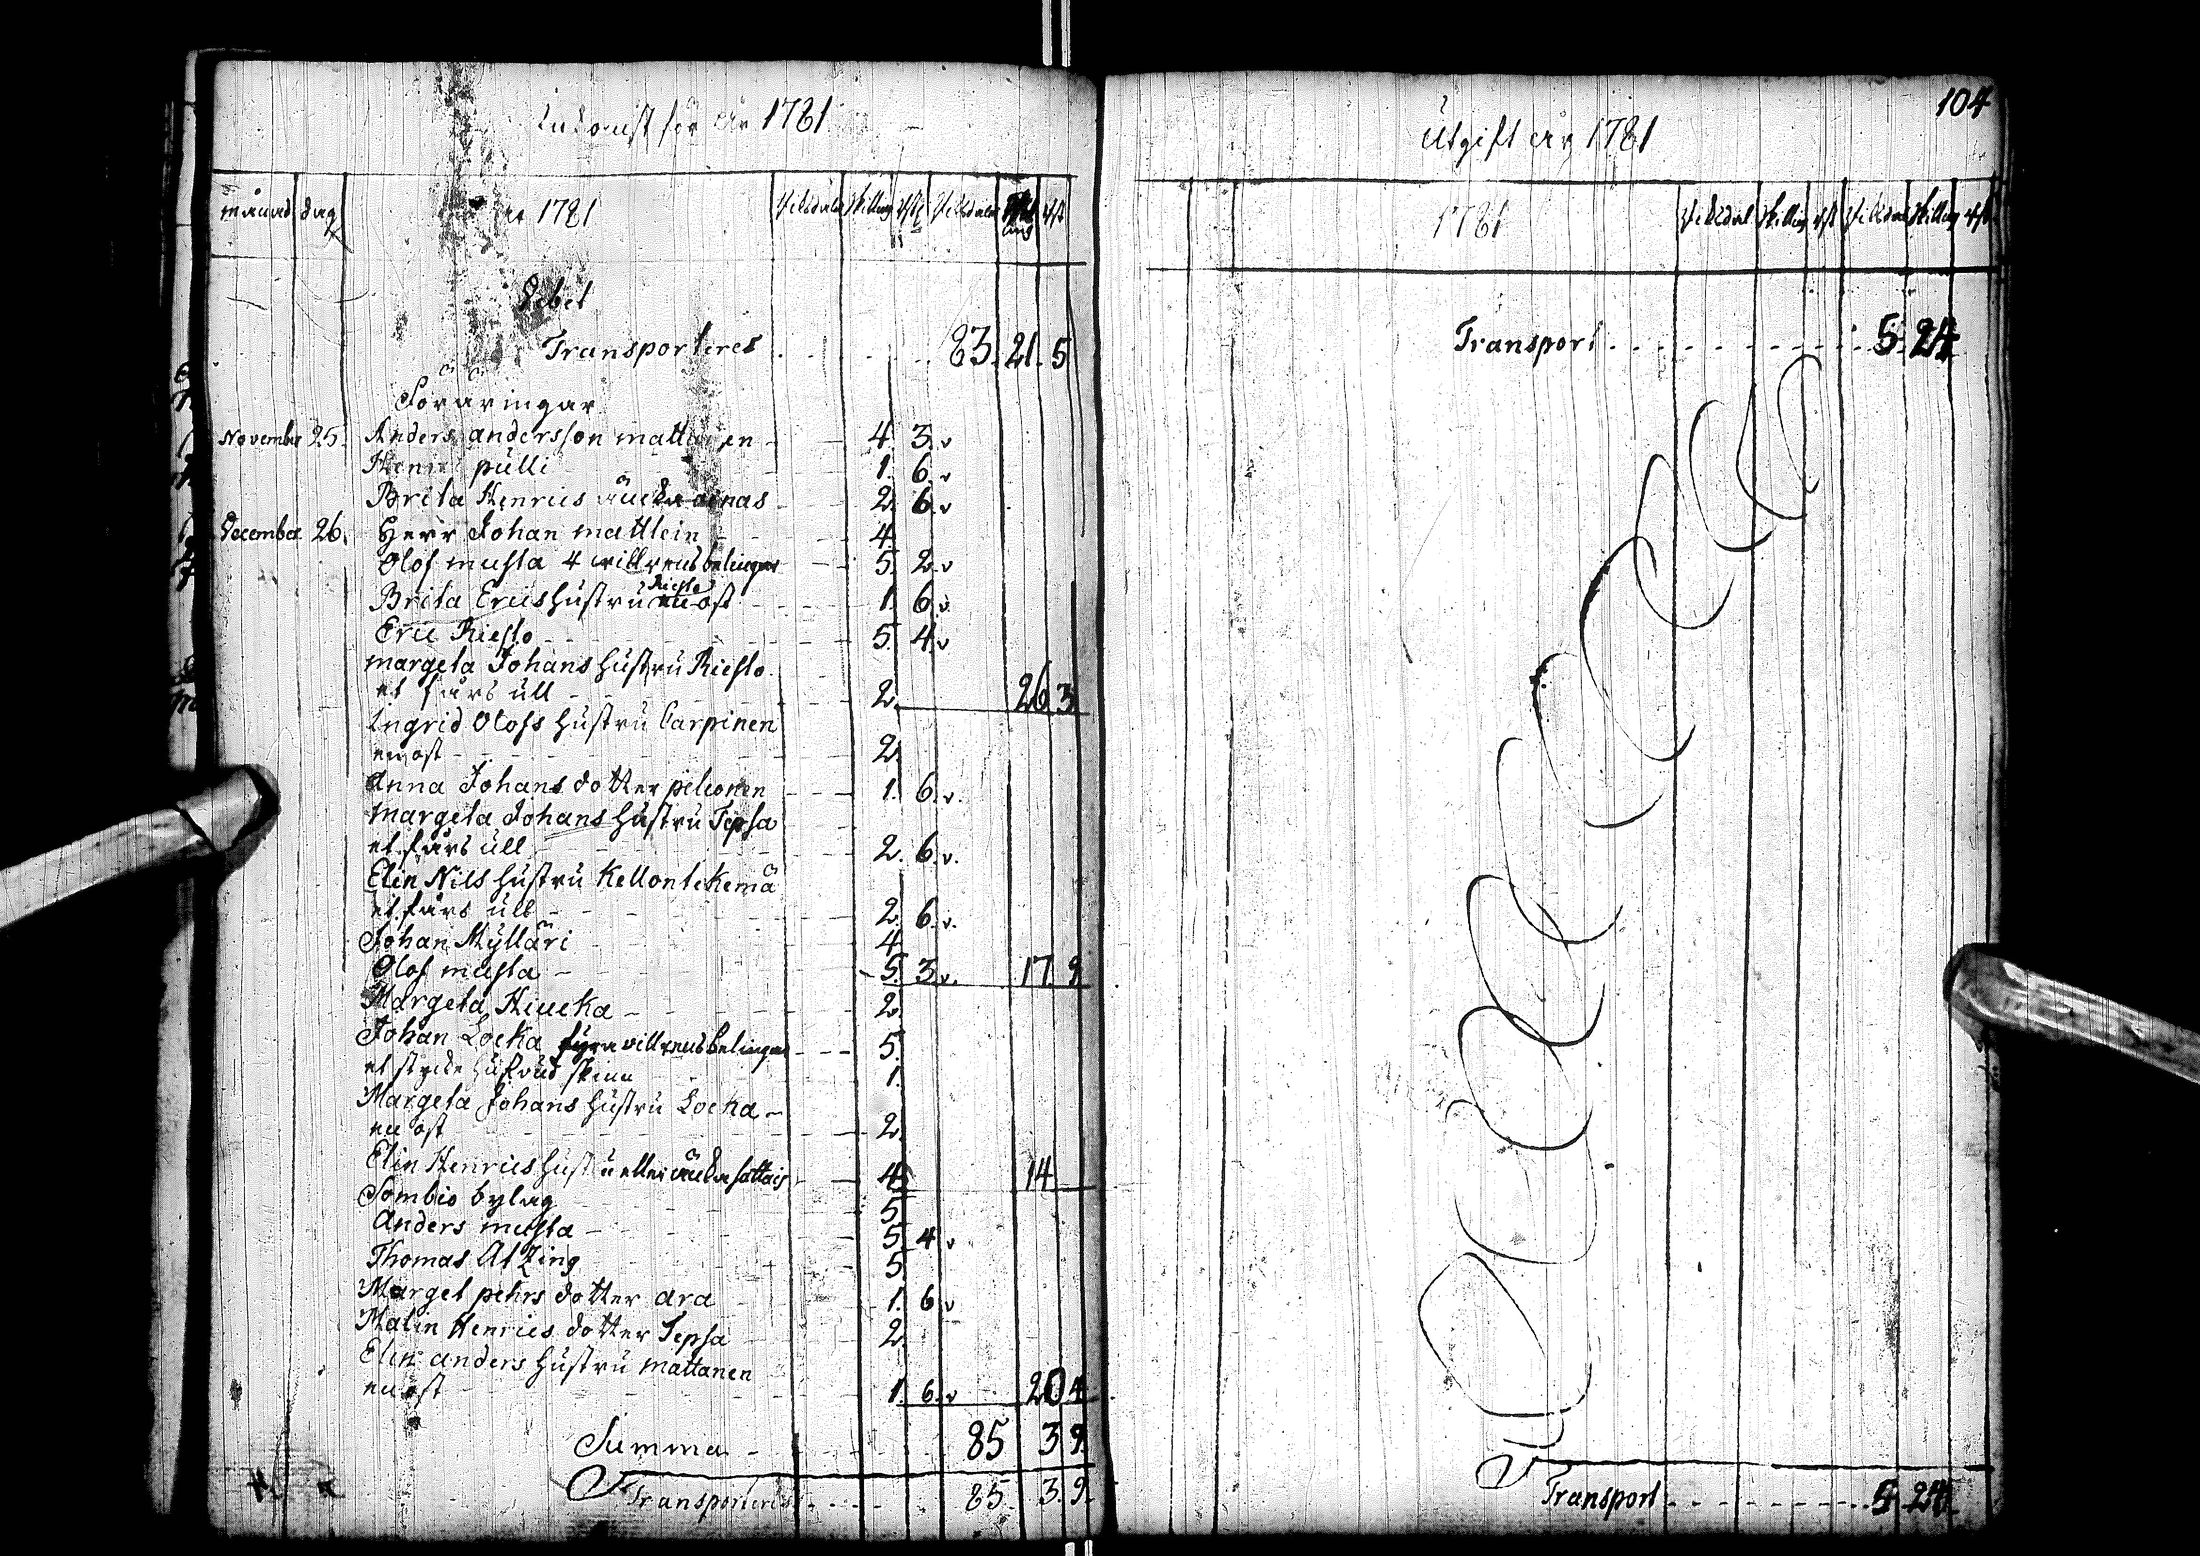 Inkomst för år 1781
månad dag år 1781 Riksdaler Skilling rst Riksdaler Skilling rst
Debet
Transporteres 83. 21. 5
Föräringar
November 25. Anders andersson mattanen 4. 3. v
Henric pulli 1. 6. v
Brita Henrics 2. 6. v
December 26. Herr Johan mattlein 4.
Olof musta 4 willrensbelingar 5. 2. v
Riesto
Brita Erics hustru en ost 1. 6. v
Eric Riesto 5. 4. v
margeta Johans hustru Riesto
et fårs ull 2. 26 3
Ingrid Olofs hustru Carpinen
en ost 2.
Anna Johans dotter pitionen 1. 6. v.
margeta Johans hustru Tepsa
et fårs ull 2. 6. v.
Elin Nils hustru Kellontekemä
et fårs ull 2. 6. v.
Johan Mylläri 4
Olof musta 5. 3. v. 17. 9
Margeta Hiucka 2.
Johan Locka fyra villrensbelingar 5.
et stycke hufvud skinn 1.
Margeta Johans hustru Locka
en ost 2.
Elin Henrics hustru 4 14
Sombio bylag 5
Anders musta 5 4 v
Thomas Atzing 5
Marget pehrs dotter ara 1. 6 v
Malin Henrics dotter Tepsa 2.
Elin anders hustru mattanen
en ost 1. 6. v 20 4
Summa 85 3 9.
Transporteres 85. 3. 9.
104
Utgift år 1781
1781 Riksdal Skilling rst Riksdal Skilling rst
Transport 5. 24
Transport 5 24.